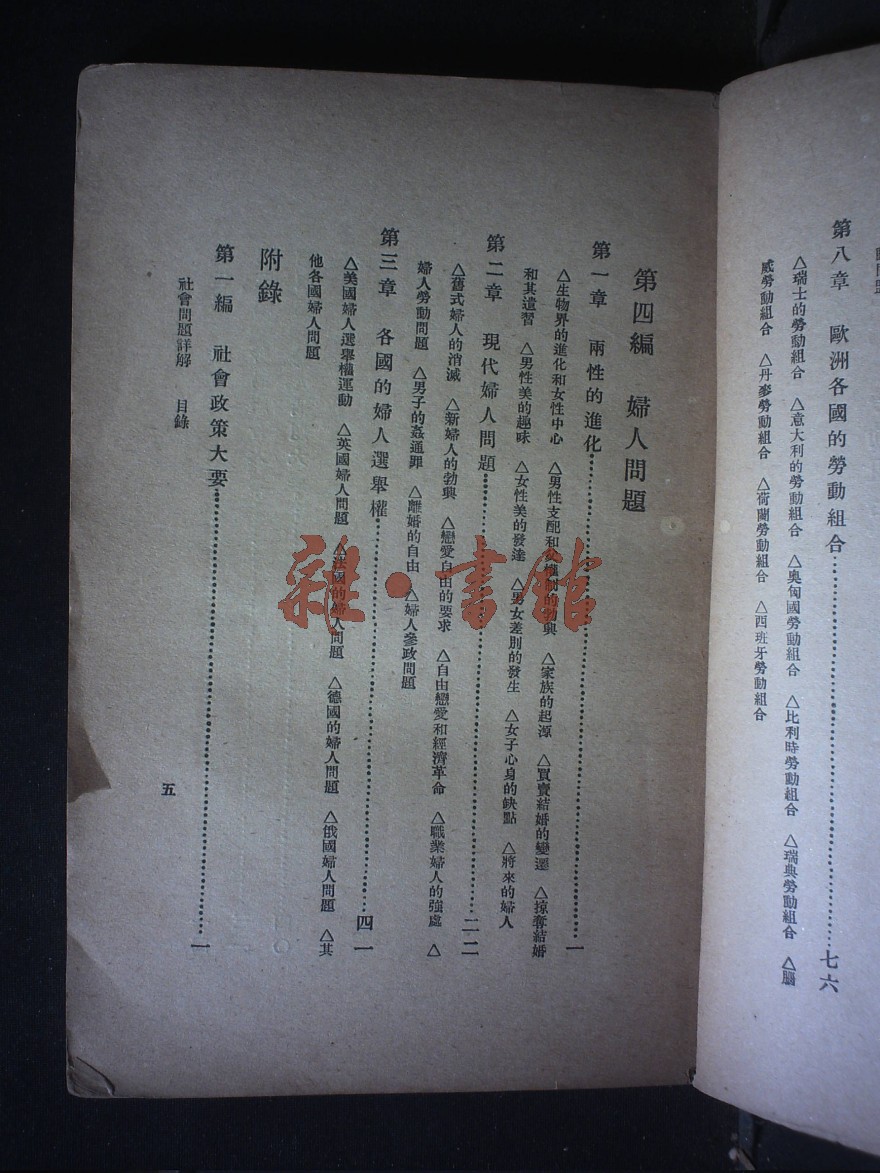 第八章　歐洲各國的勞動組合……………………七六
△瑞士的勞動組合　△意大利的勞動組合　△奧匈國勞動組合　△比利時勞動組合　△瑞典勞動組合　△腦
威勞動組合　△丹麥勞動組合　△荷蘭勞動組合　△西班牙勞動組合
第四編　婦人問題
第一章　兩性的進化……………………一
△生物界的進化和女性中心　△男性支配和父權制的勃興　△家族的起源　△買賣結婚的變遷　△掠奪結婚
和其遺習　△男性美的趣味　△女性美的發達　△男女差別的發生　△女子心身的缺點　△將來的婦人
第二章　現代婦人問題……………………二二
△舊式婦人的消滅　△新婦人的勃興　△戀愛自由的要求　△自由戀愛和經濟革命　△職業婦人的強處　△
婦人勞動問題　△男子的姦通罪　△離婚的自由　△婦人參政問題
第三章　各國的婦人選舉權……………………四一
△美國婦人選舉權運動　△英國婦人問題　△法國的婦人問題　△德國的婦人問題　△俄國婦人問題　△其
他各國婦人問題
附錄
第一編　社會政策大要……………………一
社會問題詳解　目錄
五
雜·書館